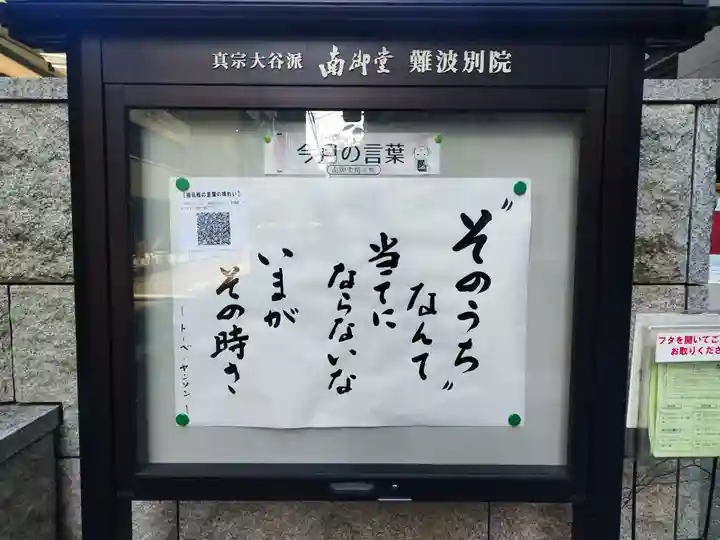 真宗大谷派 南御堂 難波別院
今月の言葉
【掲示板の言葉の味わい】
“そのうち”
なんて
当てに
ならないな
いまが
その時さ
―トーベ・ヤンソン―
フタを開いてご
お取りくださ